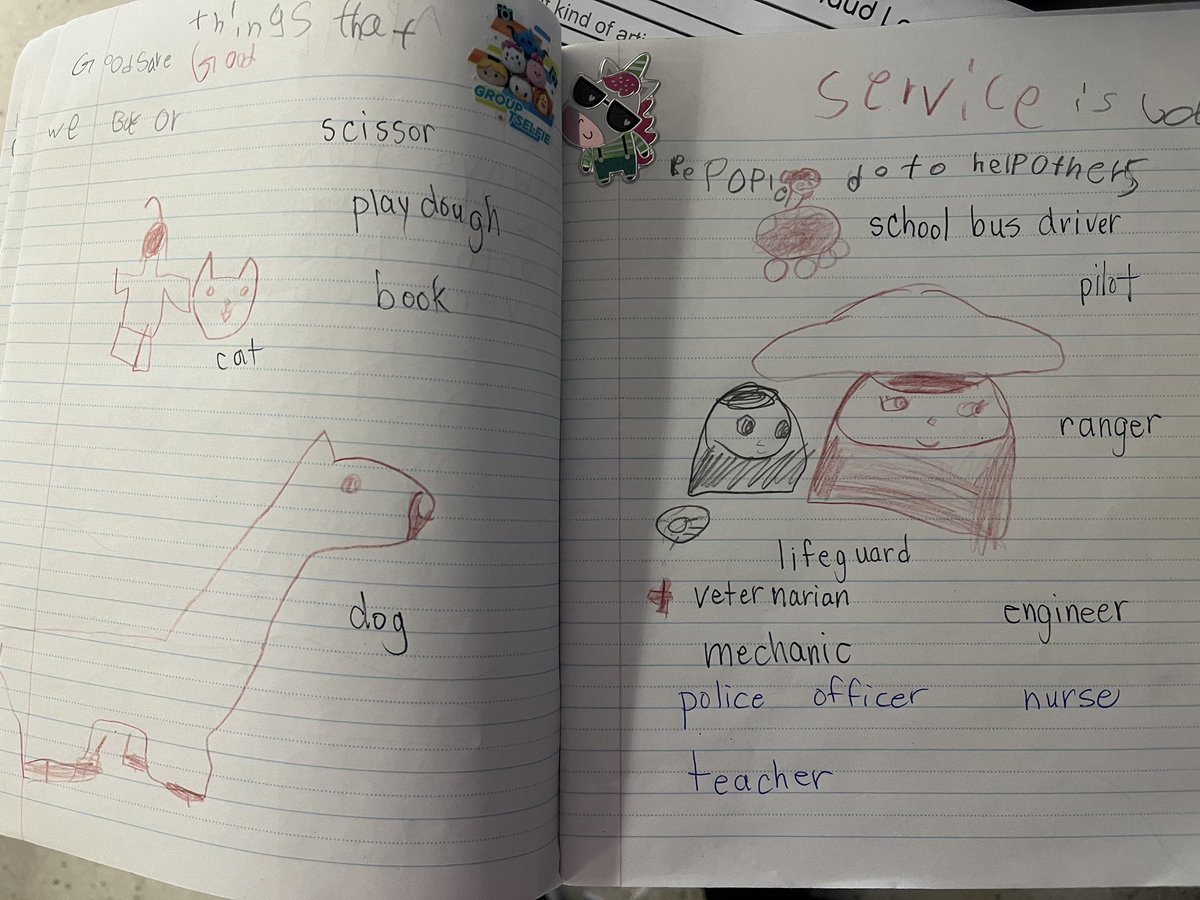 things that
Goodsare Good
we
or
scissor
play dough
book
cat
dog
GROUP
TSELFIE
kind of arti
aud
service is
PoPl do to helpothers
school bus driver
pilot
ranger
lifeguard
veternarian
engineer
mechanic
police officer
nurse
teacher